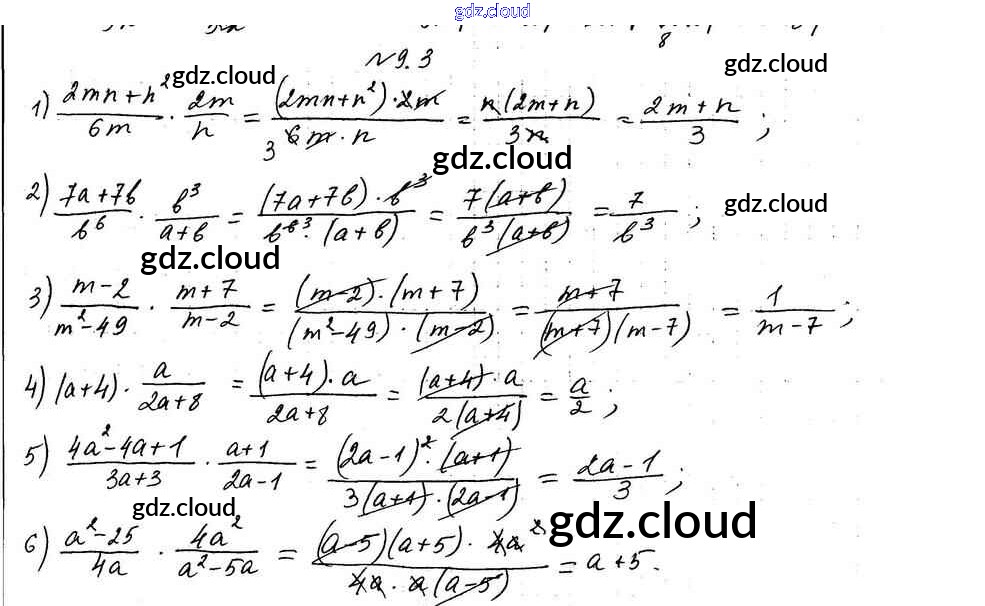 gdz.cloud
№9.3
1) (2mn+n²)/(6m) · (2m)/(n) = ((2mn+n²)·2m)/(6m·n) 3 = (n(2m+n))/(3n) = (2m+n)/3 ;
gdz.cloud gdz.cloud
gdz.cloud
2) (7a+7b)/(b⁶) · (b³)/(a+b) = ((7a+7b)·b³)/(b⁶ ³·(a+b)) = (7(a+b))/(b³(a+b)) = 7/b³ ;
gdz.cloud
gdz.cloud
3) (m-2)/(m²-49) · (m+7)/(m-2) = ((m-2)·(m+7))/((m²-49)·(m-2)) = (m+7)/((m+7)(m-7)) = 1/(m-7) ;
4) (a+4) · a/(2a+8) = ((a+4)·a)/(2a+8) = ((a+4)·a)/(2(a+4)) = a/2 ;
5) (4a²-4a+1)/(3a+3) · (a+1)/(2a-1) = ((2a-1)²·(a+1))/(3(a+1)·(2a-1)) = (2a-1)/3 ;
gdz.cloud gdz.cloud
6) (a²-25)/(4a) · (4a²)/(a²-5a) = ((a-5)(a+5)·4a²)/(4a·a(a-5)) = a+5.